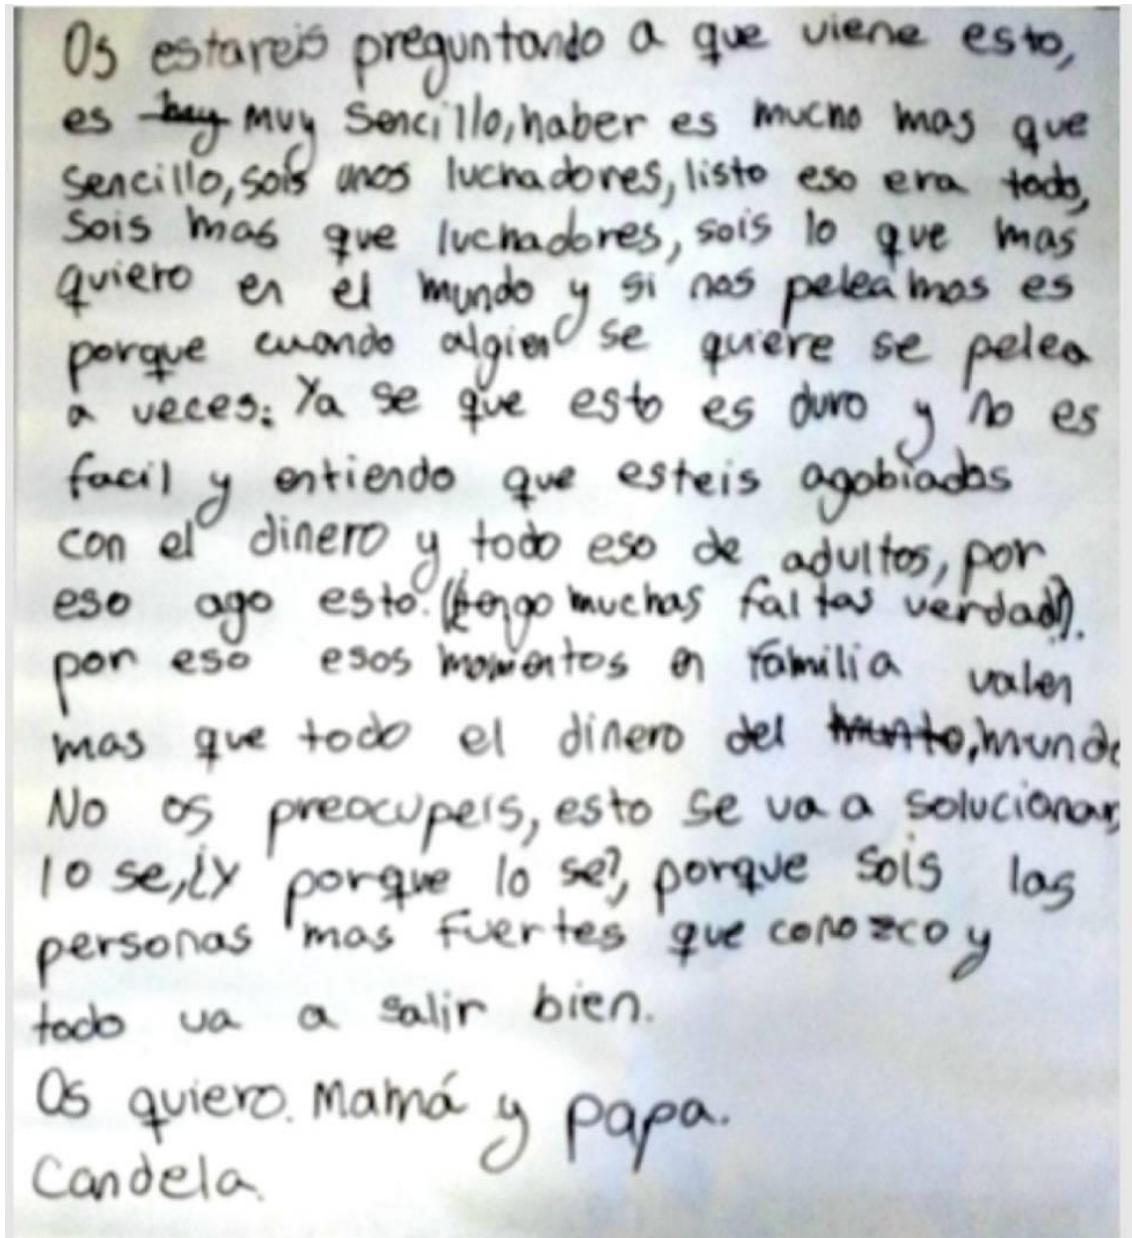 Os estareis preguntando a que viene esto,
es hay muy sencillo, haber es mucho mas que
sencillo, sois unos luchadores, listo eso era todo,
Sois mas que luchadores, sois lo que mas
quiero en el mundo y si nos peleamos es
porque cuando algien se quiere se pelea
a veces. Ya se que esto es duro y no es
facil y entiendo que esteis agobiados
con el dinero y todo eso de adultos, por
eso ago esto. (tengo muchas faltas verdad?).
por eso esos momentos en familia valen
mas que todo el dinero del munto, mundo
No os preocupeis, esto se va a solucionar,
lo se, ¿y porque lo se?, porque sois las
personas mas fuertes que conozco y
todo va a salir bien.
Os quiero. Mamá y papa.
Candela.